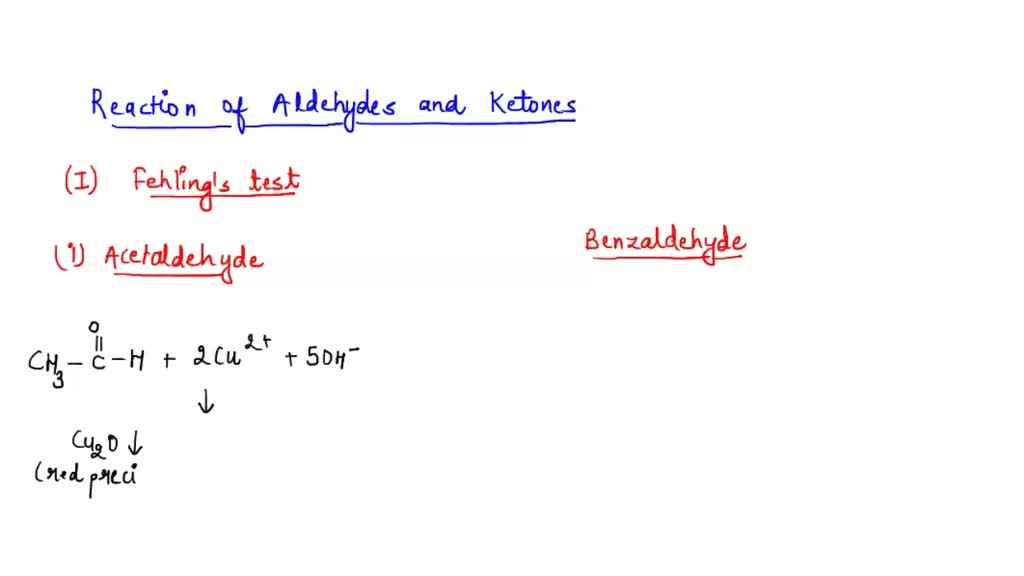 Reaction of Aldehydes and Ketones
(I) Fehling's test
(i) Acetaldehyde
Benzaldehyde
O
||
CH3 – C – H + 2Cu2+ + 5OH–
↓
Cu2O ↓
(red preci